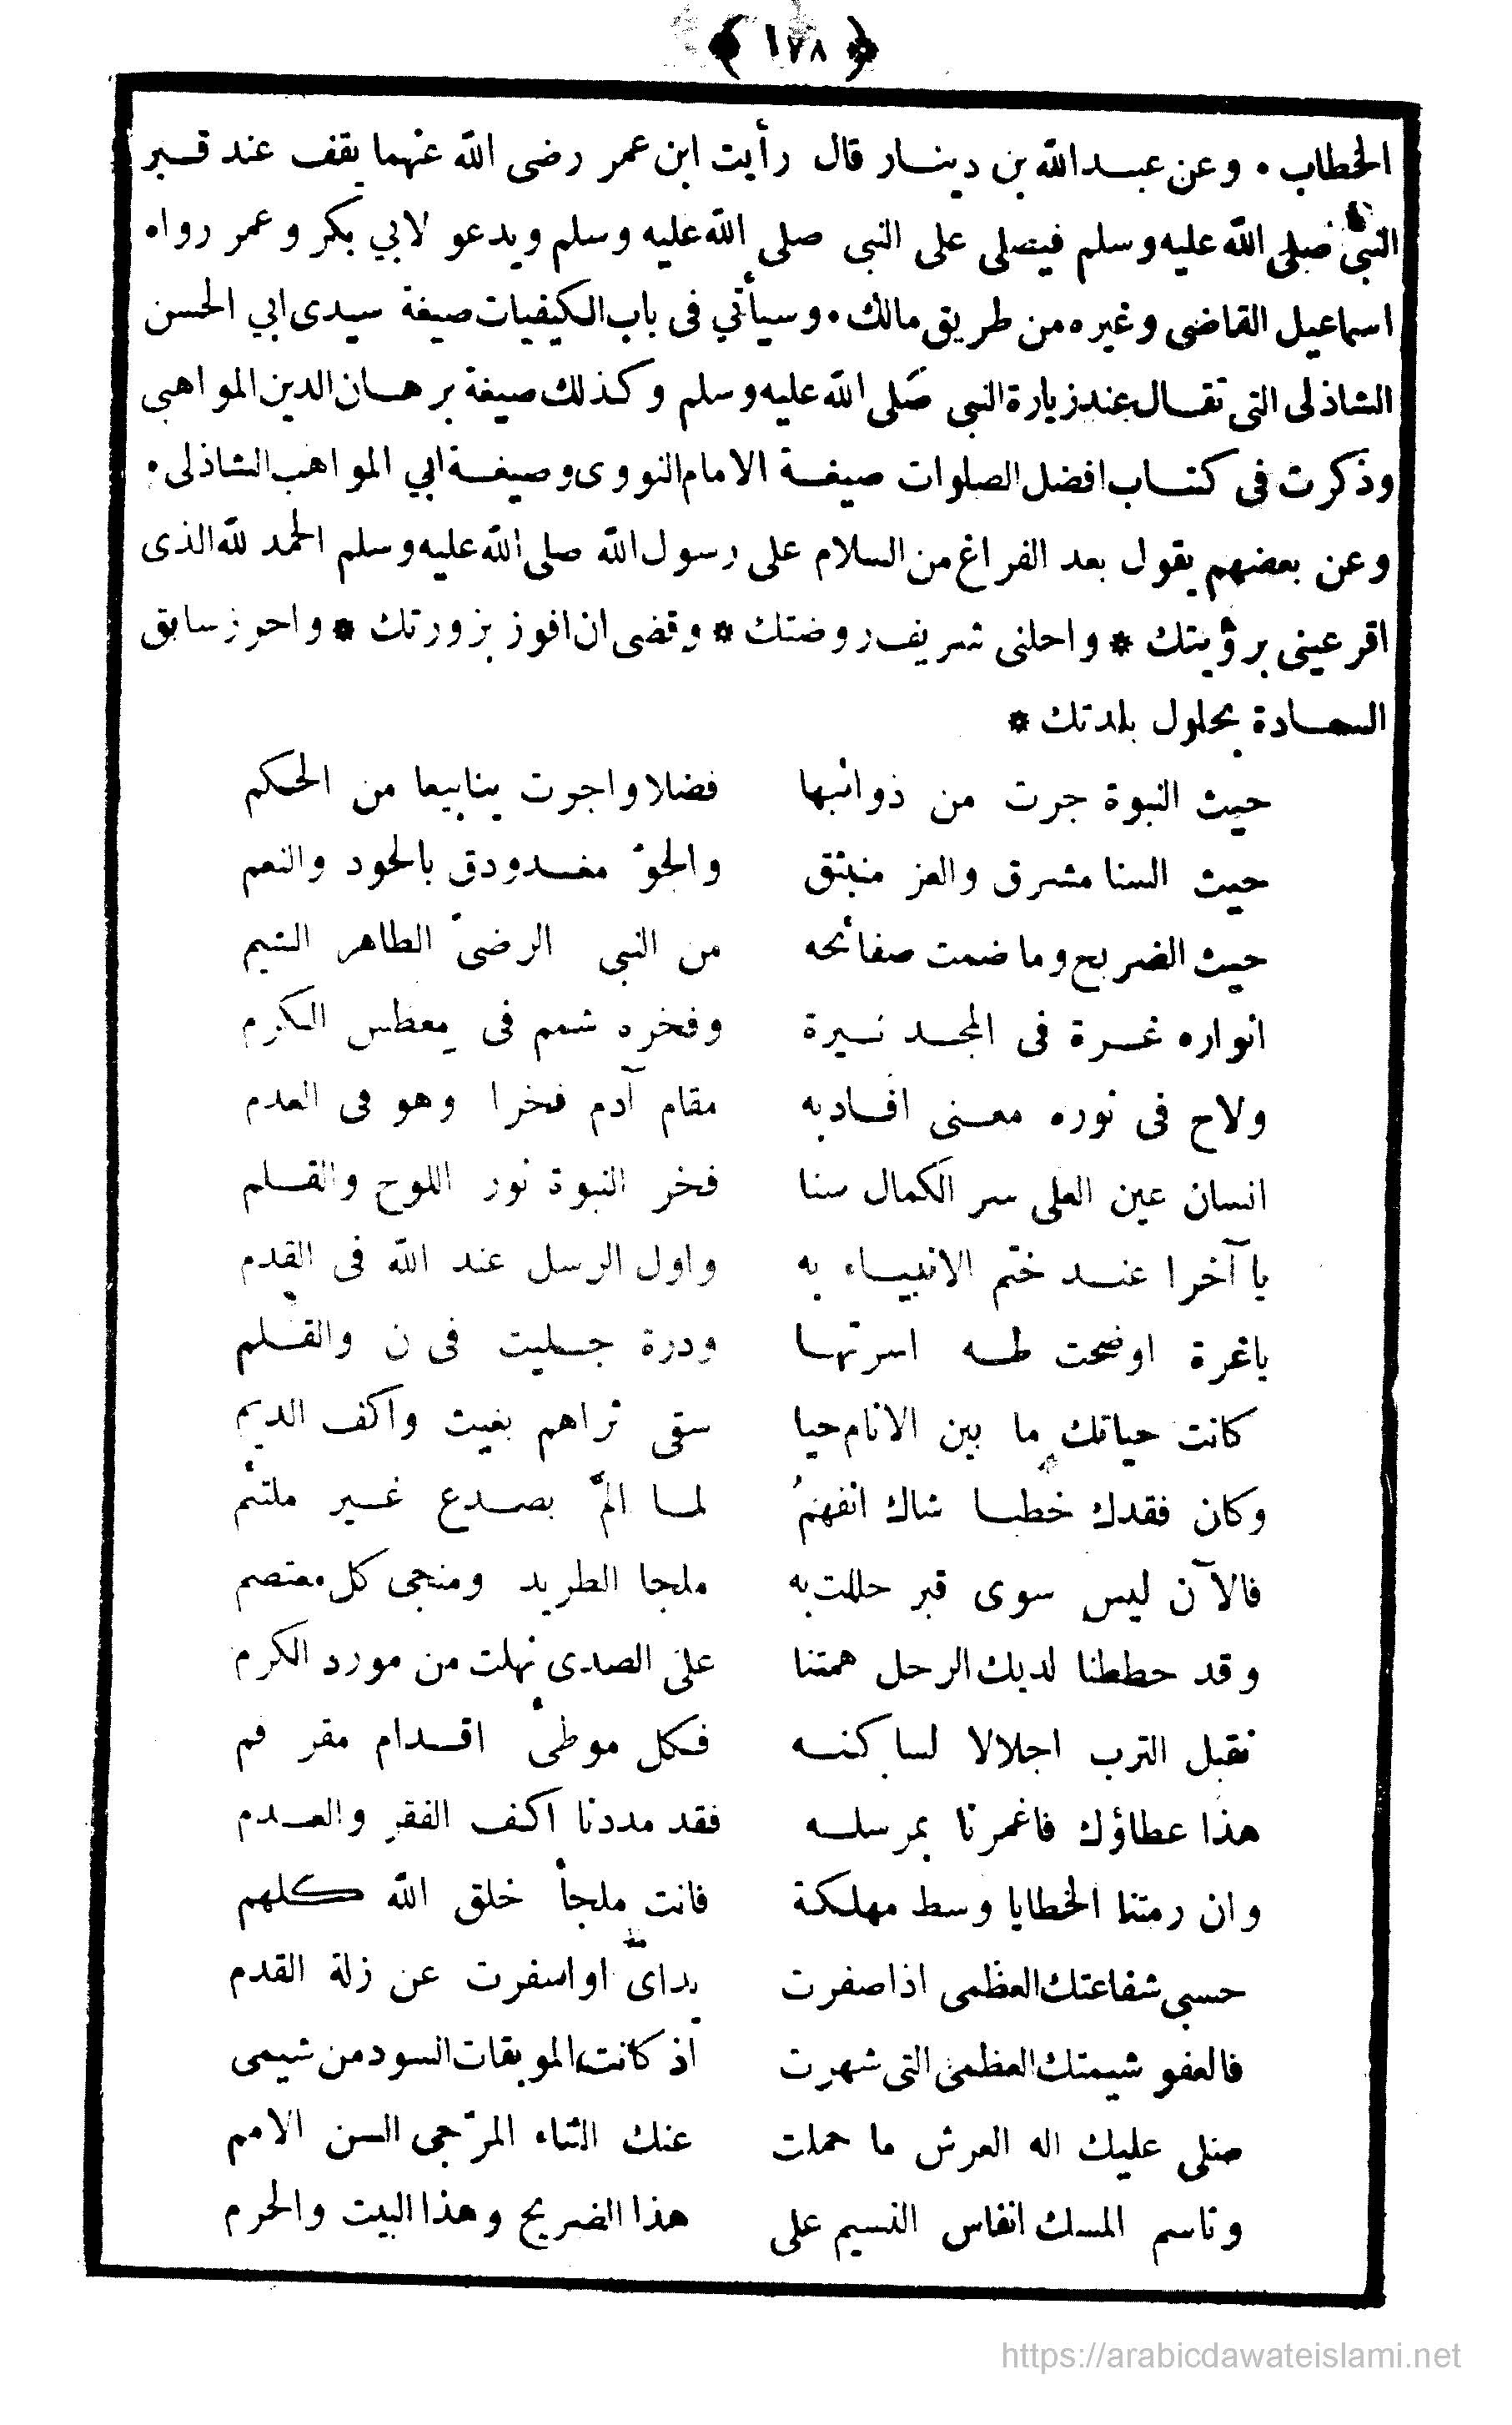 ﴿ ١٧٨ ﴾
الخطاب • وعن عبدالله بن دينار قال رأيت ابن عمر رضى الله عنهما يقف عند قبر
النبى صلى الله عليه وسلم فيصلى على النبى صلى الله عليه وسلم ويدعو لابي بكر وعمر رواه
اسماعيل القاضى وغيره من طريق مالك • وسيأتي فى باب الكيفيات صيغة سيدى ابي الحسن
الشاذلى التى تقال عند زيارة النبى صلى الله عليه وسلم وكذلك صيغة برهان الدين المواهبى
وذكرت فى كتاب افضل الصلوات صيغة الامام النووى وصيغة ابي المواهب الشاذلى •
وعن بعضهم يقول بعد الفراغ من السلام على رسول الله صلى الله عليه وسلم الحمد لله الذى
اقر عينى برؤيتك * واحلنى شريف روضتك * وقضى ان افوز بزورتك * واحرز سابق
السعادة بحلول بلدتك *
حيث النبوة جرت من ذوائبها فضلا واجرت ينابيعا من الحكم
حيث السنا مشرق والعز منبثق والجوّ مغدودق بالجود والنعم
حيث الضريح وما ضمت صفائحه من النبى الرضىّ الطاهر الشيم
انواره غرة فى المجد نيرة وفخره شمم فى معطس الكرم
ولاح فى نوره معنى افاد به مقام آدم فخرا وهو فى العدم
انسان عين العلى سر الكمال سنا فخر النبوة نور اللوح والقلم
يا آخرا عند ختم الانبياء به واول الرسل عند الله فى القدم
ياغرة اوضحت طه اسرتها ودرة جليت فى ن والقلم
كانت حياتك ما بين الانام حيا سقى ثراهم بغيث واكف الديم
وكان فقدك خطبا شاك انفهمُ لما المّ بصدع غير ملتئم
فالآن ليس سوى قبر حللت به ملجا الطريد ومنجى كل معتصم
وقد حططنا لديك الرحل همتنا على الصدى نهلت من مورد الكرم
نقبل الترب اجلالا لساكنه فكل موطئ اقدام مقر فم
هذا عطاؤك فاغمرنا بمرسله فقد مددنا اكف الفقر والعدم
وان رمتنا الخطايا وسط مهلكة فانت ملجأ خلق الله كلهم
حسبى شفاعتك العظمى اذا صفرت يداىّ او اسفرت عن زلة القدم
فالعفو شيمتك العظمى التى شهرت اذ كانت الموبقات السود من شيمى
صلى عليك اله العرش ما حملت عنك الثناء المرّجى السن الامم
وناسم المسك انفاس النسيم على هذا الضريح وهذا البيت والحرم
https://arabicdawateislami.net